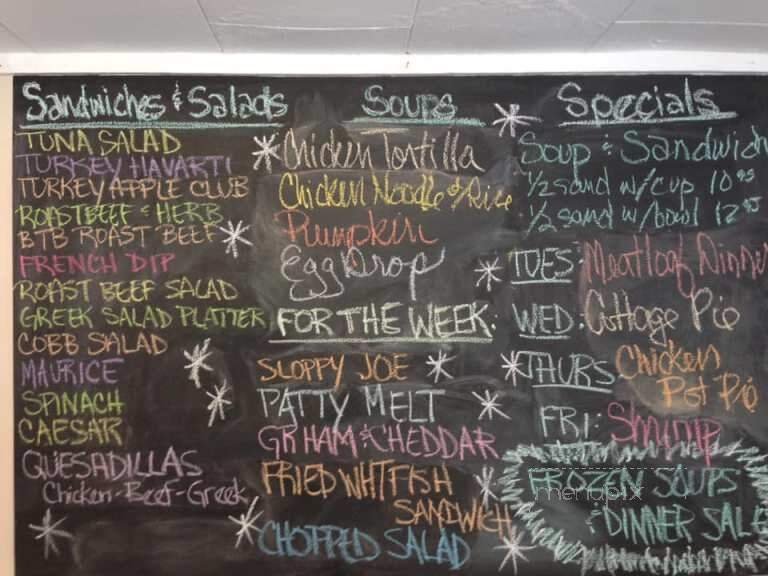 Sandwiches & Salads
TUNA SALAD
TURKEY HAVARTI
TURKEY APPLE CLUB
ROAST BEEF & HERB
BTB ROAST BEEF
FRENCH DIP
ROAST BEEF SALAD
GREEK SALAD PLATTER
COBB SALAD
MAURICE
SPINACH
CAESAR
QUESADILLAS
Chicken-Beef-Greek
Soups
Chicken Tortilla
Chicken Noodle or Rice
Pumpkin
Egg Drop
FOR THE WEEK:
SLOPPY JOE
PATTY MELT
GR HAM & CHEDDAR
FRIED WHTFISH
SANDWICH
CHOPPED SALAD
Specials
Soup & Sandwich
1/2 sand w/cup 10
1/2 sand w/bowl 12
TUES: Meatloaf Dinner
WED: Cottage Pie
THURS: Chicken
Pot Pie
FRI: Shrimp
FROZEN SOUPS
& DINNER SALE
menupix